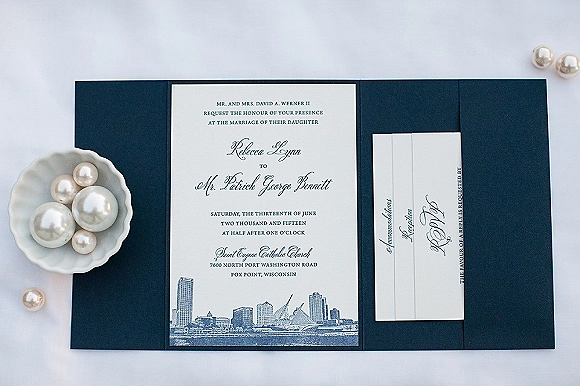 MR. AND MRS. DAVID A. WERNER II
REQUEST THE HONOUR OF YOUR PRESENCE
AT THE MARRIAGE OF THEIR DAUGHTER
Rebecca Lynn
TO
Mr. Patrick George Bennett
SATURDAY, THE THIRTEENTH OF JUNE
TWO THOUSAND AND FIFTEEN
AT HALF AFTER ONE O'CLOCK
Saint Eugene Catholic Church
7600 NORTH PORT WASHINGTON ROAD
FOX POINT, WISCONSIN
Accommodations
Reception
THE FAVOUR OF A REPLY IS REQUESTED BY